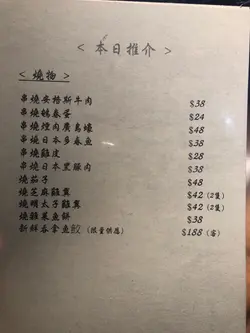 < 本日推介 >
< 燒物 >
串燒安格斯牛肉 $38
串燒鵪春蛋 $24
串燒煙肉廣島蠔 $48
串燒日本多春魚 $38
串燒雞皮 $28
串燒日本黑豚肉 $38
燒茄子 $48
燒芝麻雞翼 $42 (2隻)
燒明太子雞翼 $42 (2隻)
燒雜菓魚餅 $38
新鮮吞拿魚鮫 (限量供應) $188 (客)